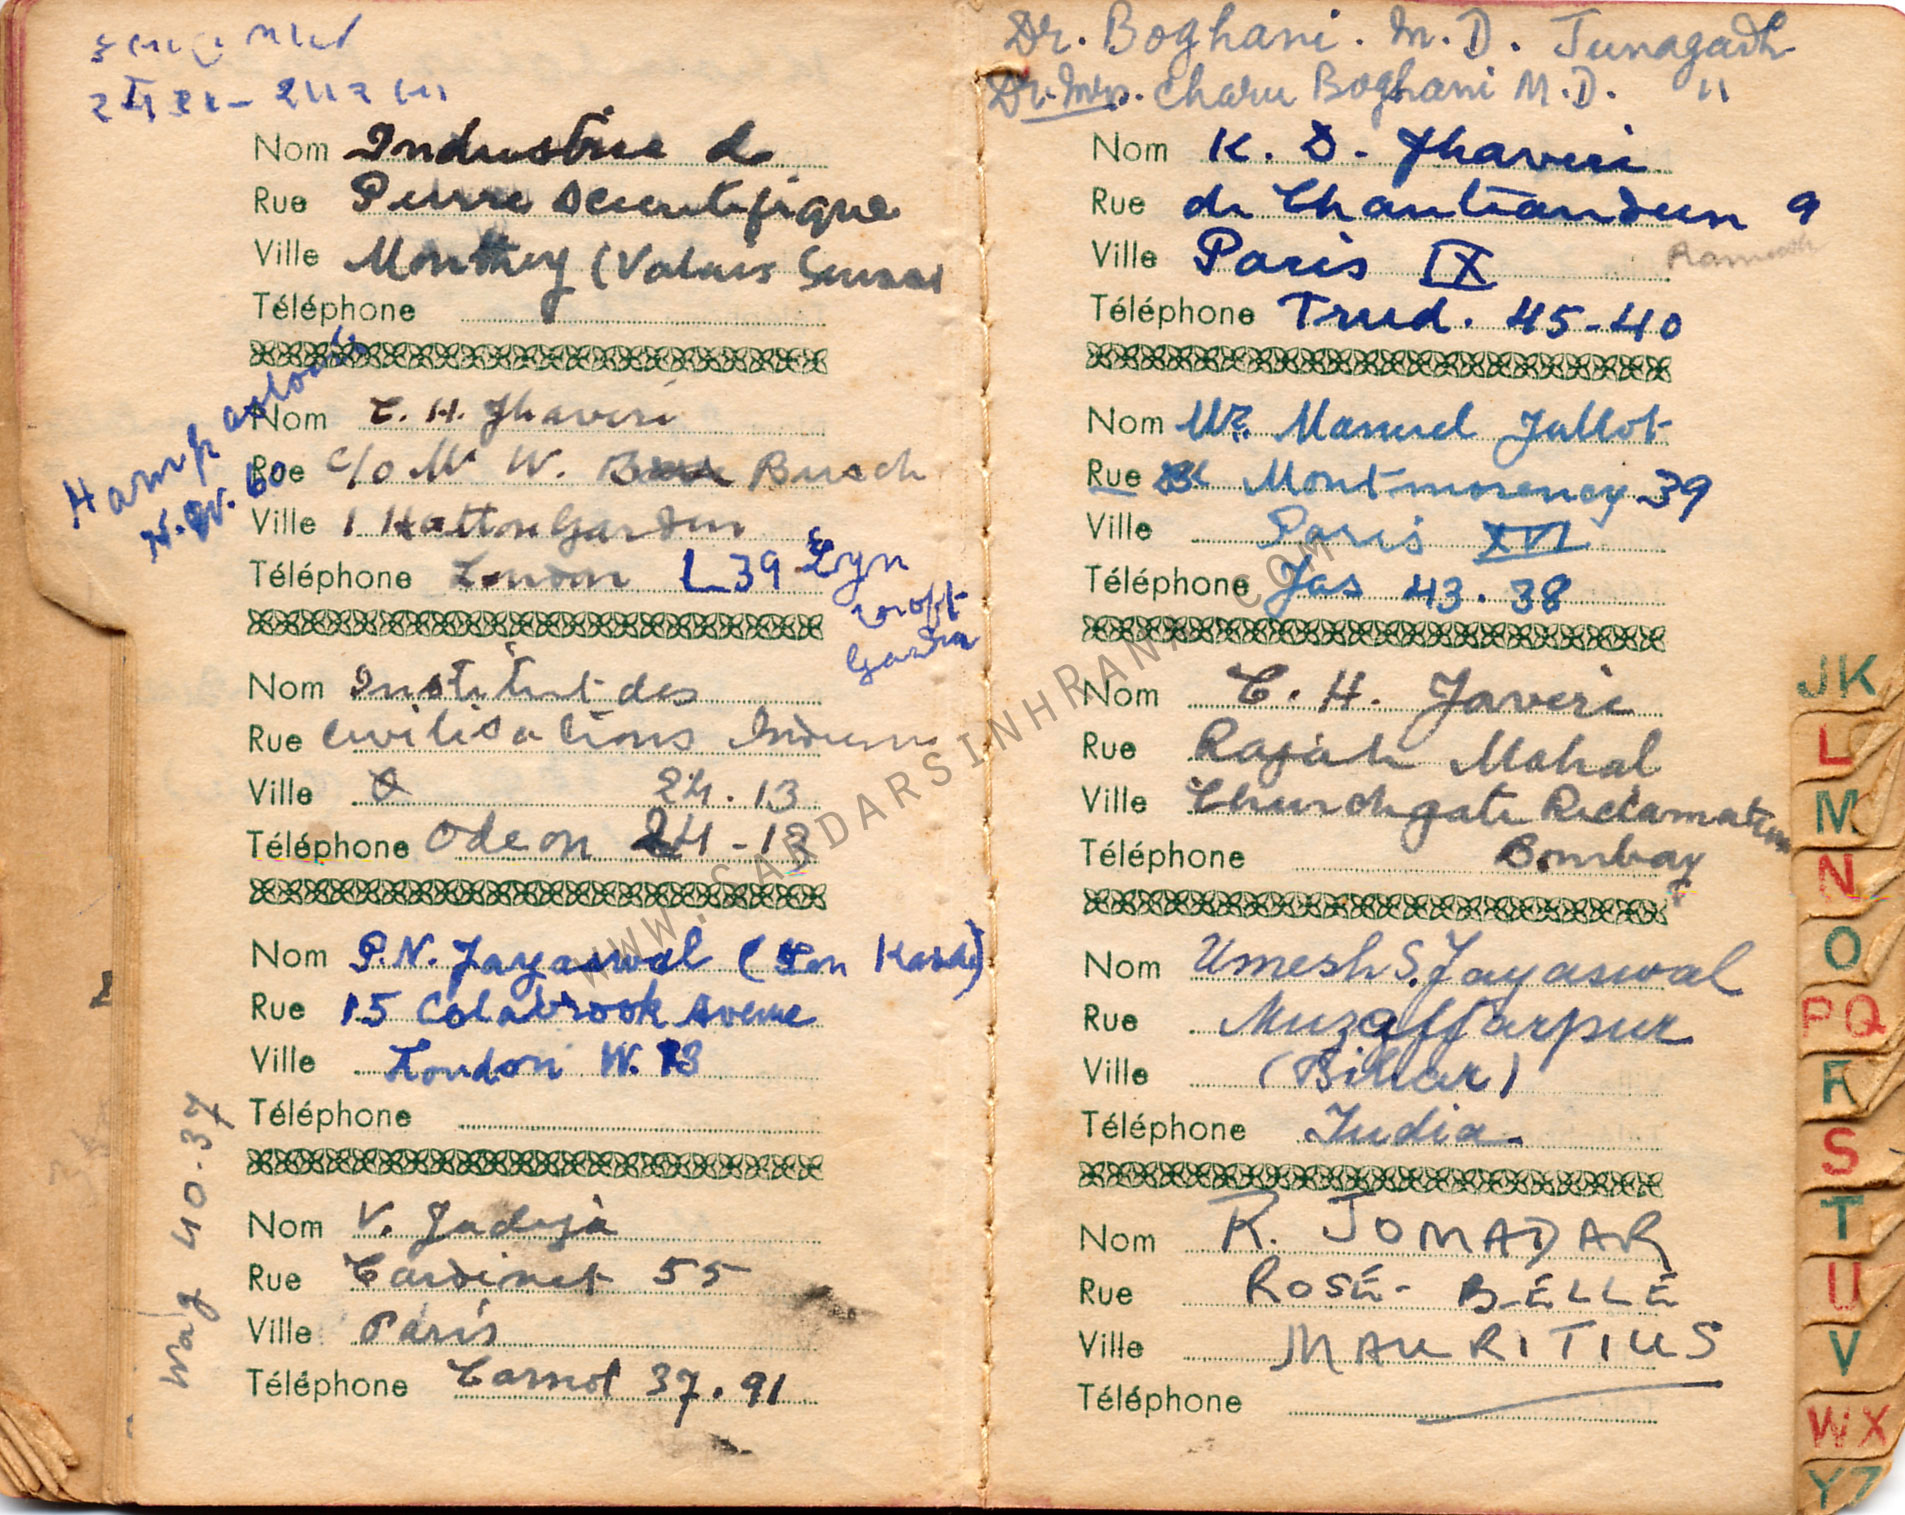 Nom Industrie de
Rue Pierre Scientifique
Ville Monthey (Valais Suisse
Téléphone
Hampstead
N.W. 60
Nom C. H. Jhaveri
Rue c/o Mr W. Busch
Ville 1 Hatton Garden
Téléphone London L 39
Garden
Nom Institut des
Rue Civilisations Indienne
Ville 24.13
Téléphone Odeon 24-13
Nom P.N. Jayaswal
Rue 15 Colabrook Avenue
Ville London W. 13
Téléphone
Wag 40.37
Nom V. Jadeja
Rue Cardinet 55
Ville Paris
Téléphone Carnot 37.91
Dr. Boghani. M.D. Junagadh
Dr. Mrs. Charu Boghani M.D. "
Nom K. D. Jhaveri
Rue de Chantraudun 9
Ville Paris IX
Téléphone Trud. 45-40
Nom Mr. Manuel Jallot
Rue Montmorency 39
Ville Paris XVI
Téléphone Jas 43.38
Nom C. H. Javeri
Rue Rajah Mahal
Ville Churchgate Reclamation
Téléphone Bombay
Nom Umesh S. Jayaswal
Rue Muzaffarpur
Ville (Bihar)
Téléphone India.
Nom R. JOMADAR
Rue ROSE-BELLE
Ville MAURITIUS
Téléphone
JK
L
M
N
O
PQ
R
S
T
U
V
WX
YZ
WWW.SARDARSINHRANA.COM